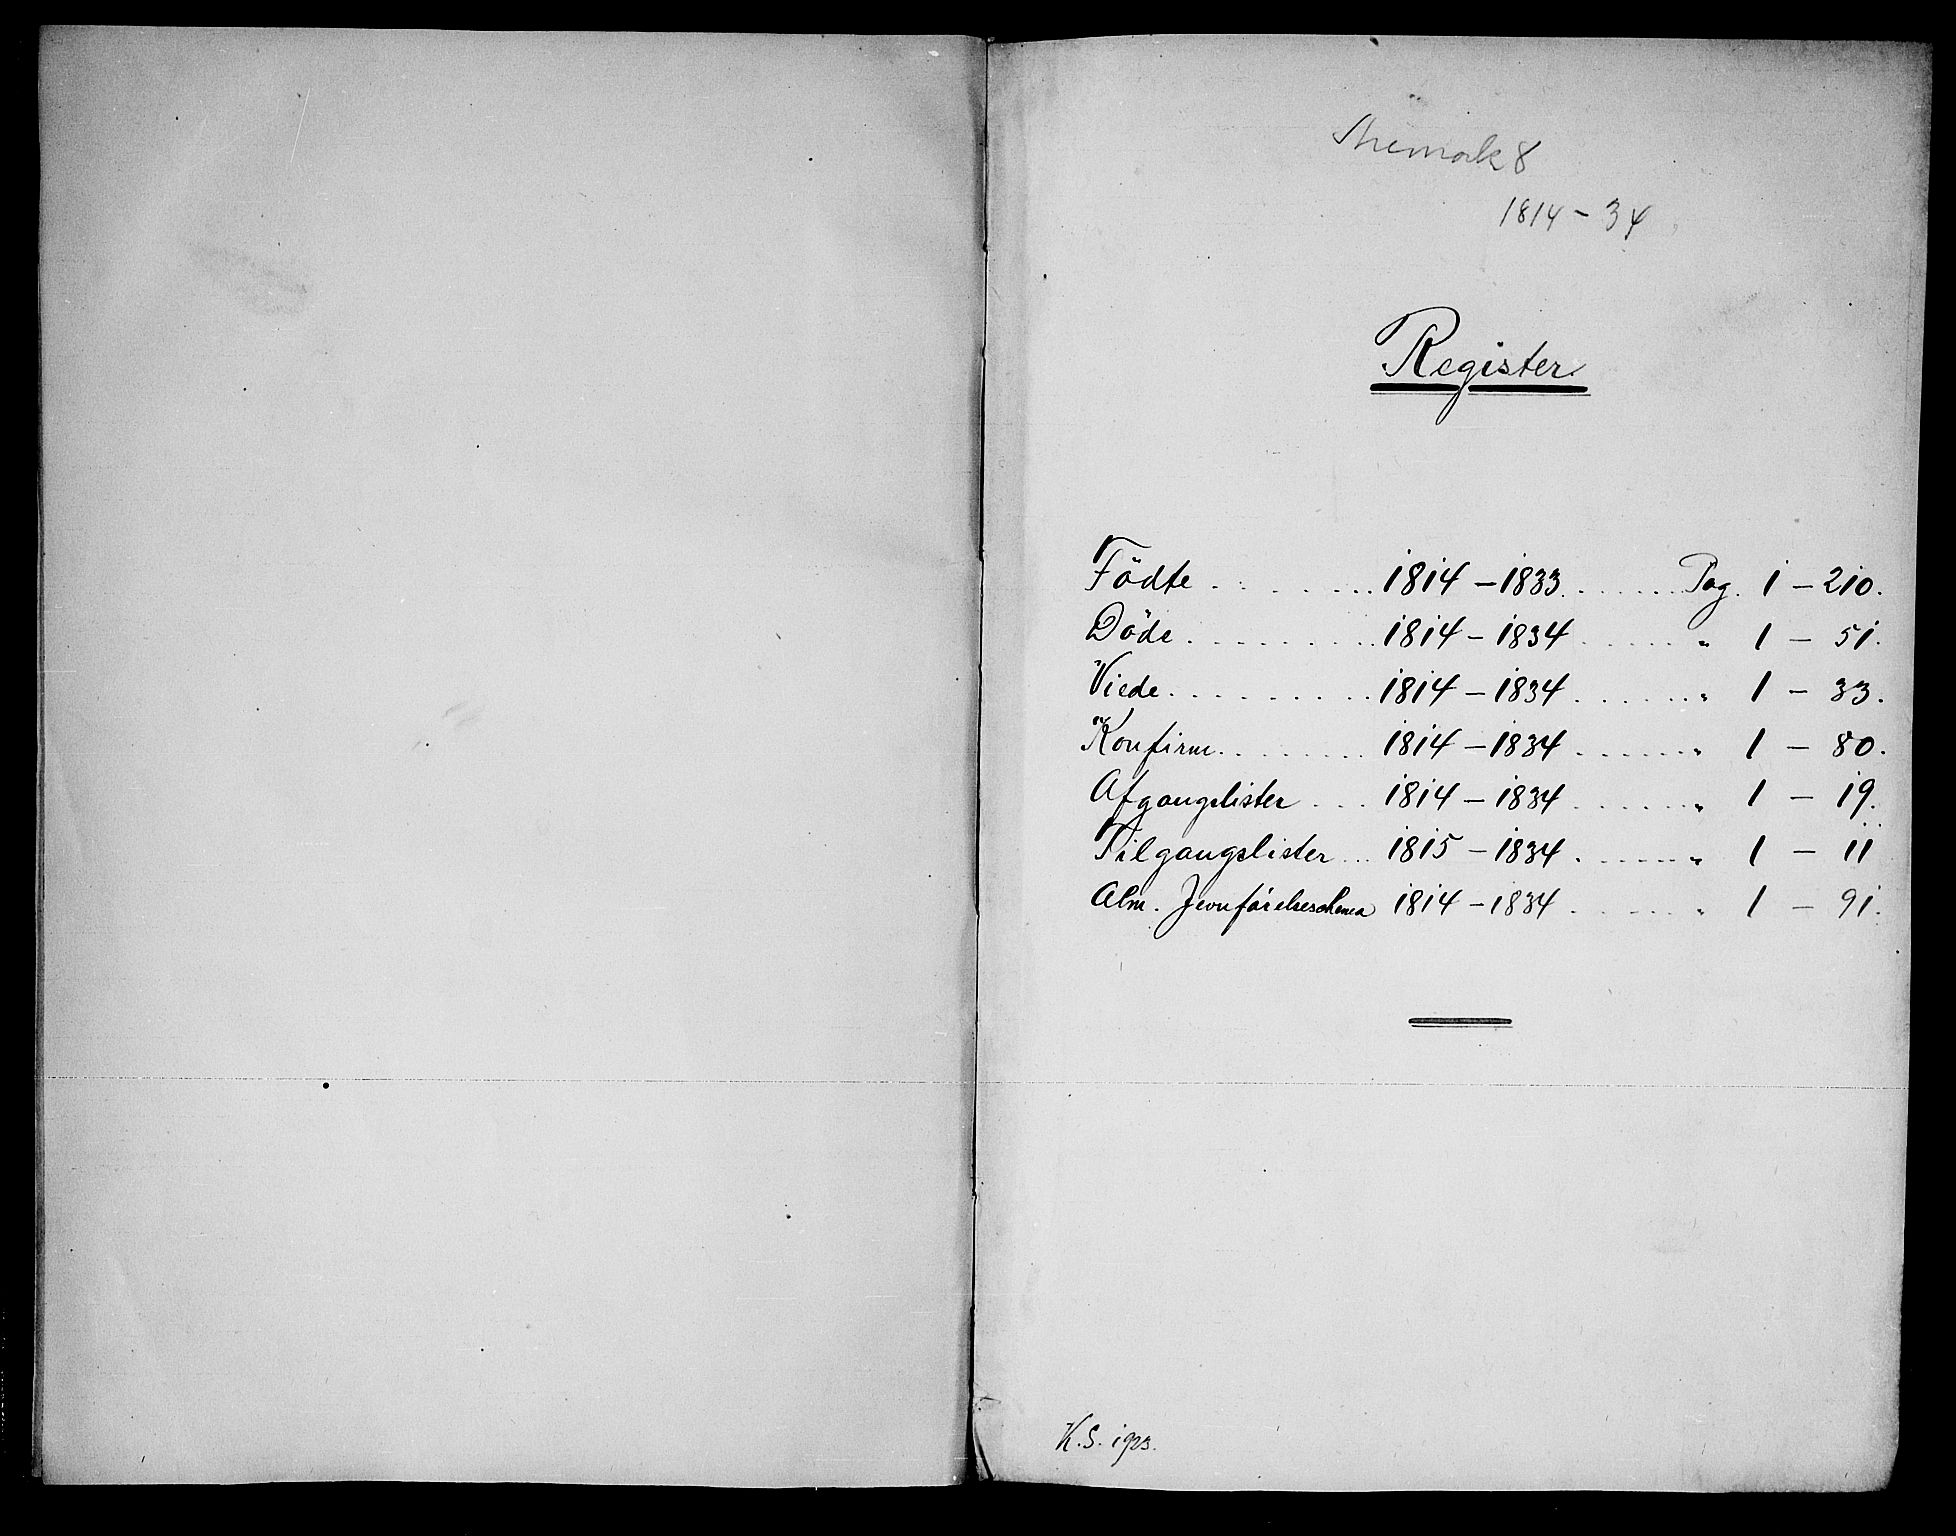 Aremark 8
1814 - 34
Register
Födte . . . . . . . 1814 - 1833 . . . . . . Pag. 1 - 210.
Döde . . . . . . . . 1814 - 1834 . . . . . " 1 - 51.
Viede . . . . . . . . . 1814 - 1834 . . . . . . " 1 - 33.
Konfirm. . . . . . . . 1814 - 1834 . . . . . . " 1 - 80.
Afgangslister . . . 1814 - 1834 . . . . . . " 1 - 19.
Tilgangslister . . . 1815 - 1834 . . . . . . " 1 - 11
Alm. Jevnförelseschema 1814 - 1834 . . . . . " 1 - 91.
K.S. 1923.